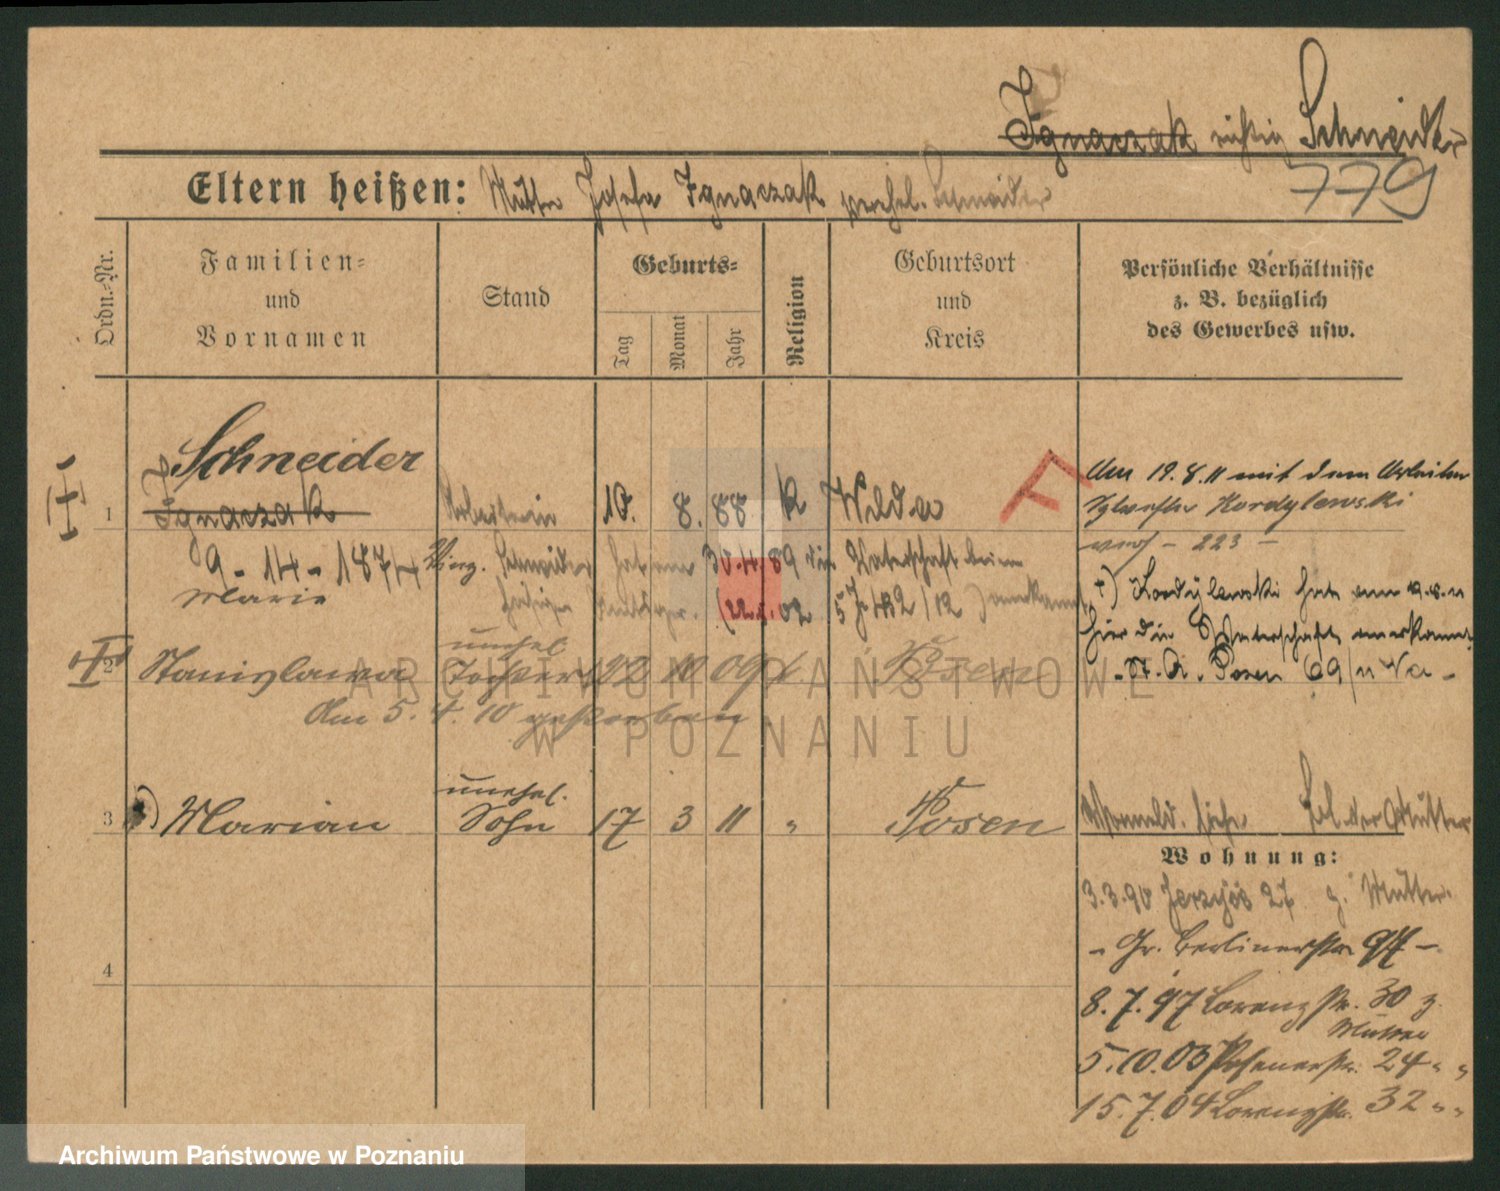 Ignaczak richtig Schneider
779
Eltern heißen: Mutter Josefa Ignaczak verehel. Schneider
Ordn.-Nr.
Familien-
und
Vornamen
Stand
Geburts-
Tag
Monat
Jahr
Religion
Geburtsort
und
Kreis
Persönliche Verhältnisse
z. B. bezüglich
des Gewerbes usw.
Schneider
1 Ignaczak Arbeiterin 10. 8. 88 k Wilda
9-14-1874
Marie
Am 19.8.11 mit dem Arbeiter
Sylvester Kordylewski
- 223 -
Schneider hat am 30.4.89 die Vaterschaft beim
5 J 482/12
+) Kordylewski hat am
hier die Vaterschaft anerkannt
St. A. Posen 69/11 Va -
2 Stanislawa unehel. Tochter 22 10 09 k. Posen
Am 5. 4. 10 gestorben
3 Marian unehel. Sohn 17 3 11 " Posen
bei der Mutter
Wohnung:
3.3.90 Jerzyce 27 z. Mutter.
- Gr. Berlinerstr. 97 -
8.7.97 Lorenzstr. 30 z.
Mutter
5.10.03 Posenerstr. 24 " "
15.7.04 Lorenzstr. 32 " "
4
ARCHIWUM PAŃSTWOWE
W POZNANIU
Archiwum Państwowe w Poznaniu